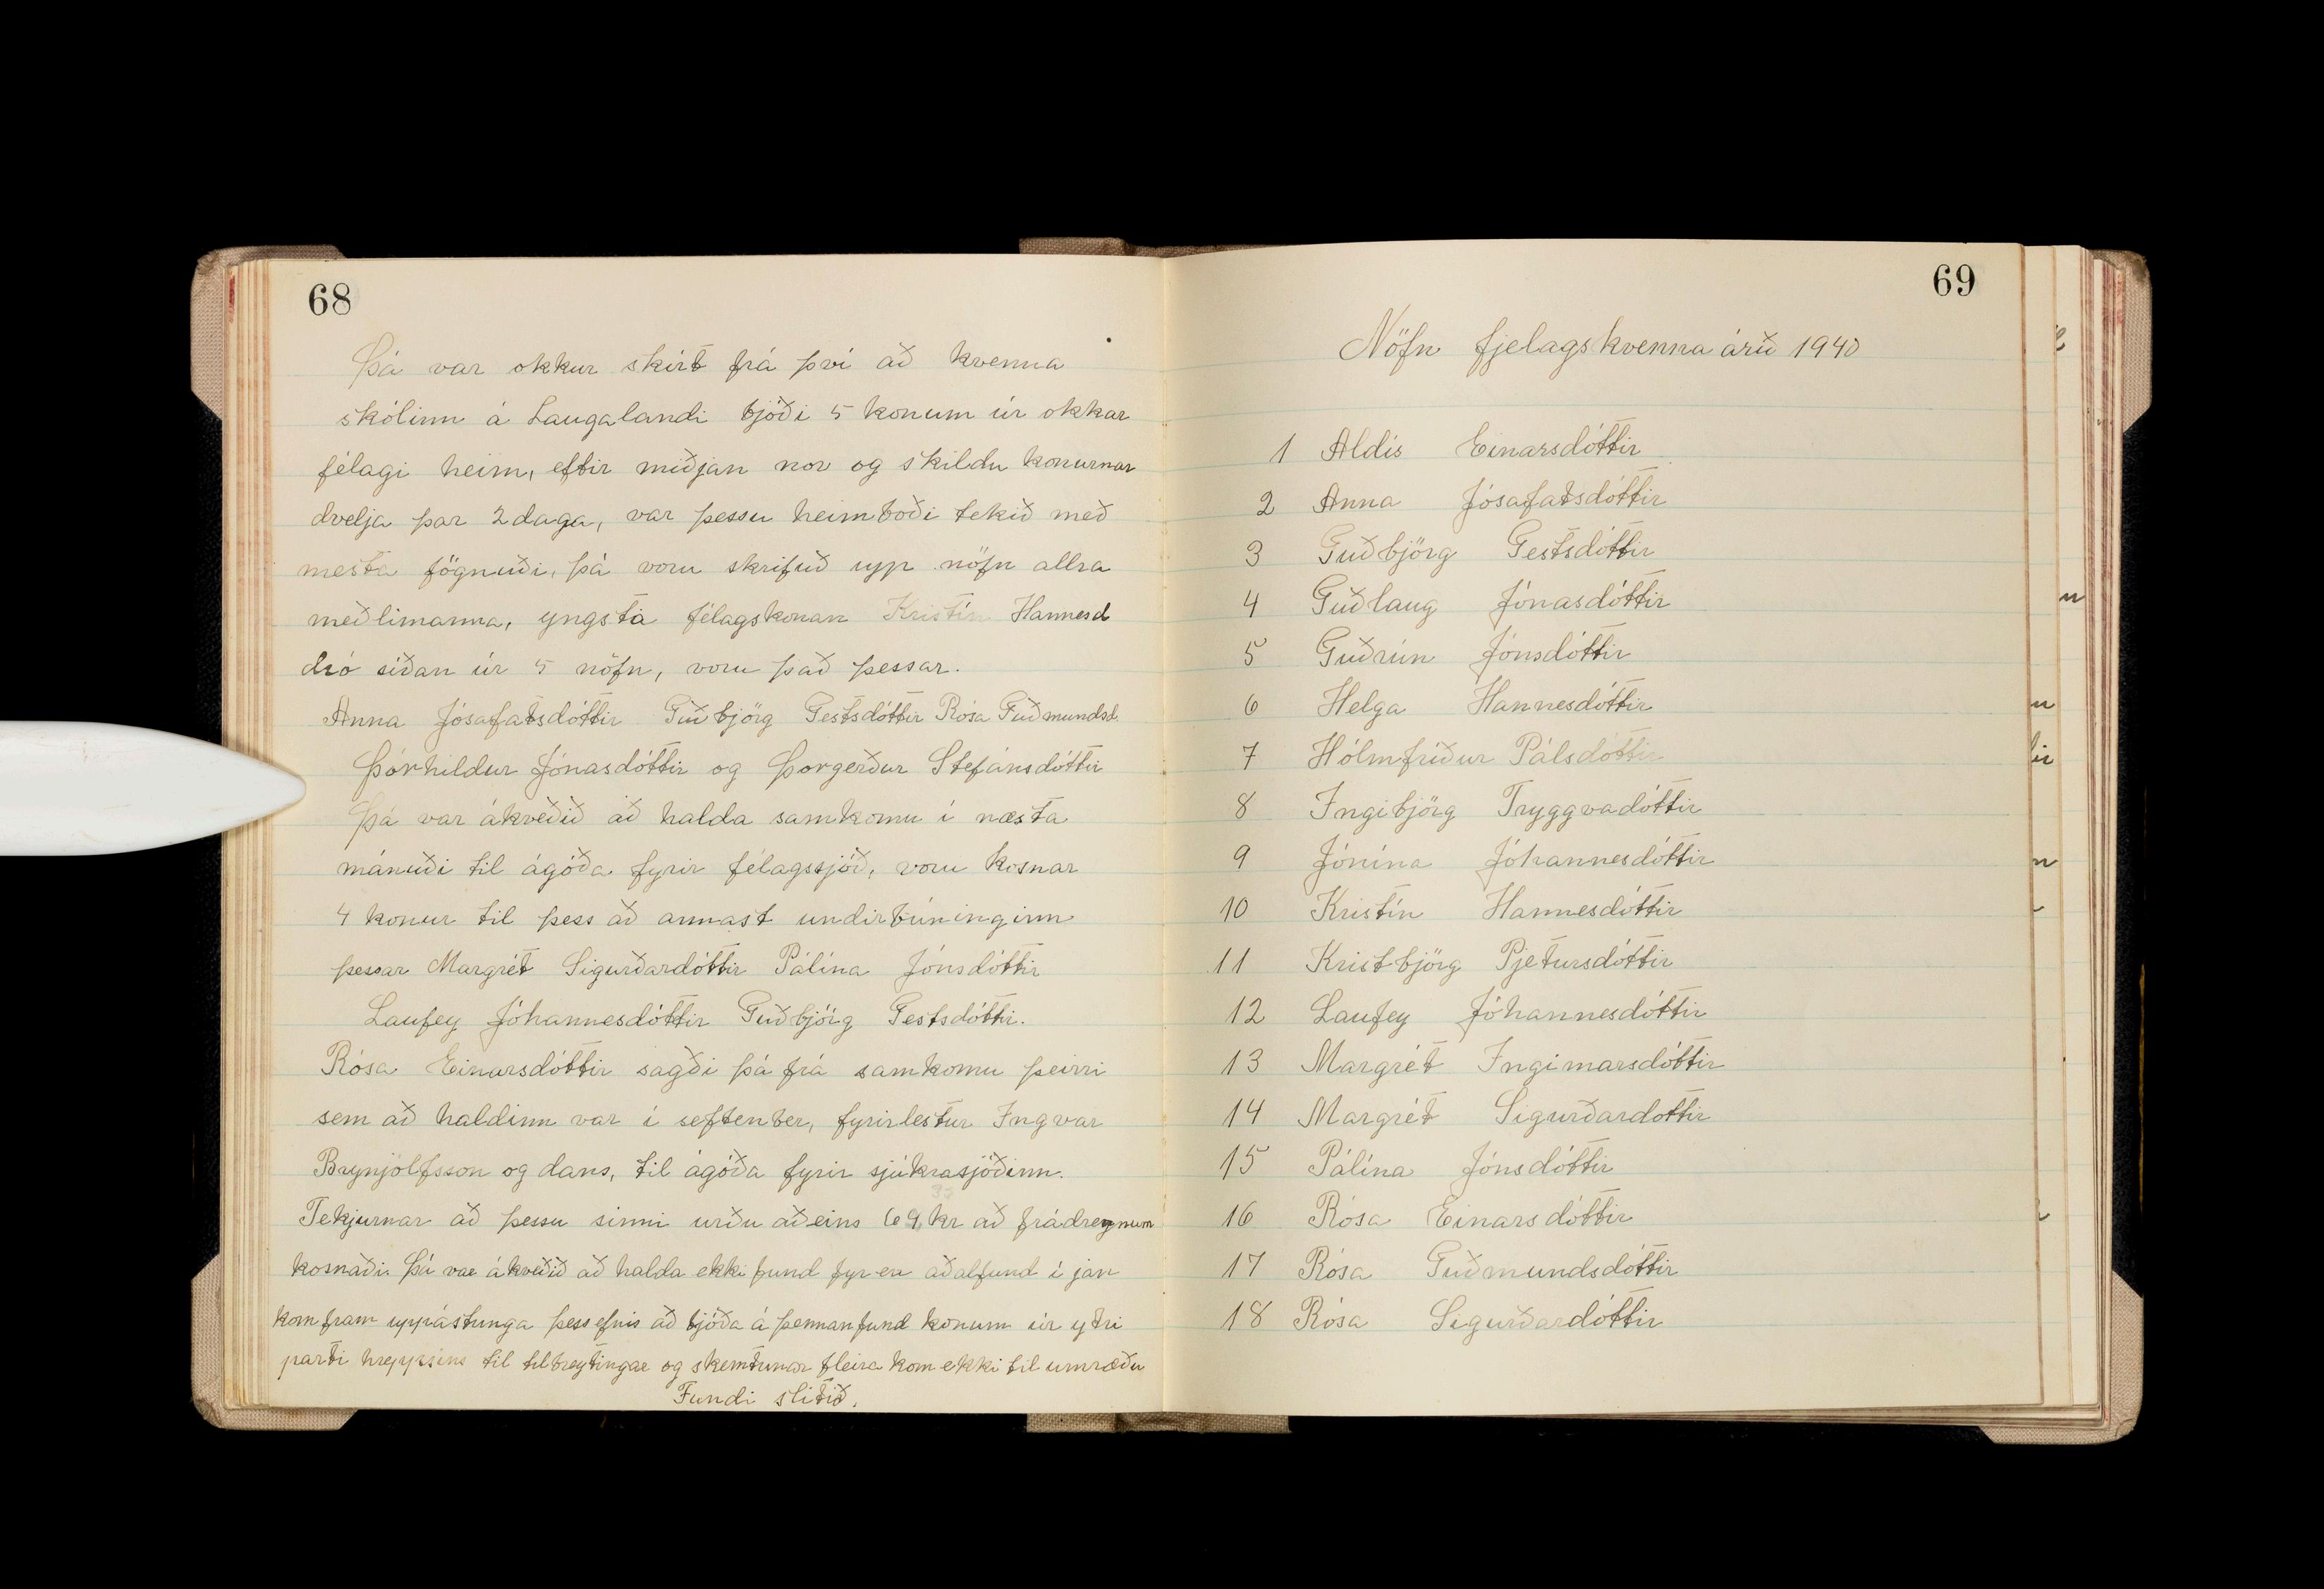 68
Þá var okkur skírt frá því að kvenna
skólinn á Laugalandi bjóði 5 konum úr okkar
félagi heim, eftir miðjan nov og skildu konurnar
dvelja þar 2 daga, var þessu heimboði tekið með
mesta fögnuði, þá voru skrifuð upp nöfn allra
meðlimanna, yngsta félagskonan Kristín Hannesd
dró síðan úr 5 nöfn, voru það þessar.
Anna Jósafatsdóttir Guðbjörg Gestsdóttir Rósa Guðmundsd.
Þórhildur Jónasdóttir og Þorgerður Stefánsdóttir
Þá var ákveðið að halda samkomu í næsta
mánuði til ágóða fyrir félagssjóð, voru kosnar
4 konur til þess að annast undirbúninginn
þessar Margrét Sigurðardóttir Pálína Jónsdóttir
Laufey Jóhannesdóttir Guðbjörg Gestsdóttir.
Rósa Einarsdóttir sagði þá frá samkomu þeirri
sem að haldinn var íseftenber, fyrirlestur Ingvar
Brynjólfsson og dans, til ágóða fyrir sjúkrasjóðinn.
Tekjurnar að þessu sinni urðu aðeins 69, kr að frádregnum
kosnaði. Þá var ákveðið að halda ekki fund fyr en aðalfund í jan
kom fram uppástunga þess efnis að bjóða á þennan fund konum úr ytri
parti hreppsins til tilbreytingar og skemtunar fleira kom ekki til umræðu
Fundi slitið.
69
Nöfn fjelagskvenna árið 1940
1 Aldís Einarsdóttir
2 Anna Jósafatsdóttir
3 Guðbjörg Gestsdóttir
4 Guðlaug Jónasdóttir
5 Guðrún Jónsdóttir
6 Helga Hannesdóttir
7 Hólmfríður Pálsdóttir
8 Ingibjörg Tryggvadóttir
9 Jónína Jóhannesdóttir
10 Kristín Hannesdóttir
11 Kristbjörg Pjetursdóttir
12 Laufey Jóhannesdóttir
13 Margrét Ingimarsdóttir
14 Margrét Sigurðardottir
15 Pálína Jónsdóttir
16 Rósa Einarsdóttir
17 Rósa Guðmundsdóttir
18 Rósa Sigurðardóttir